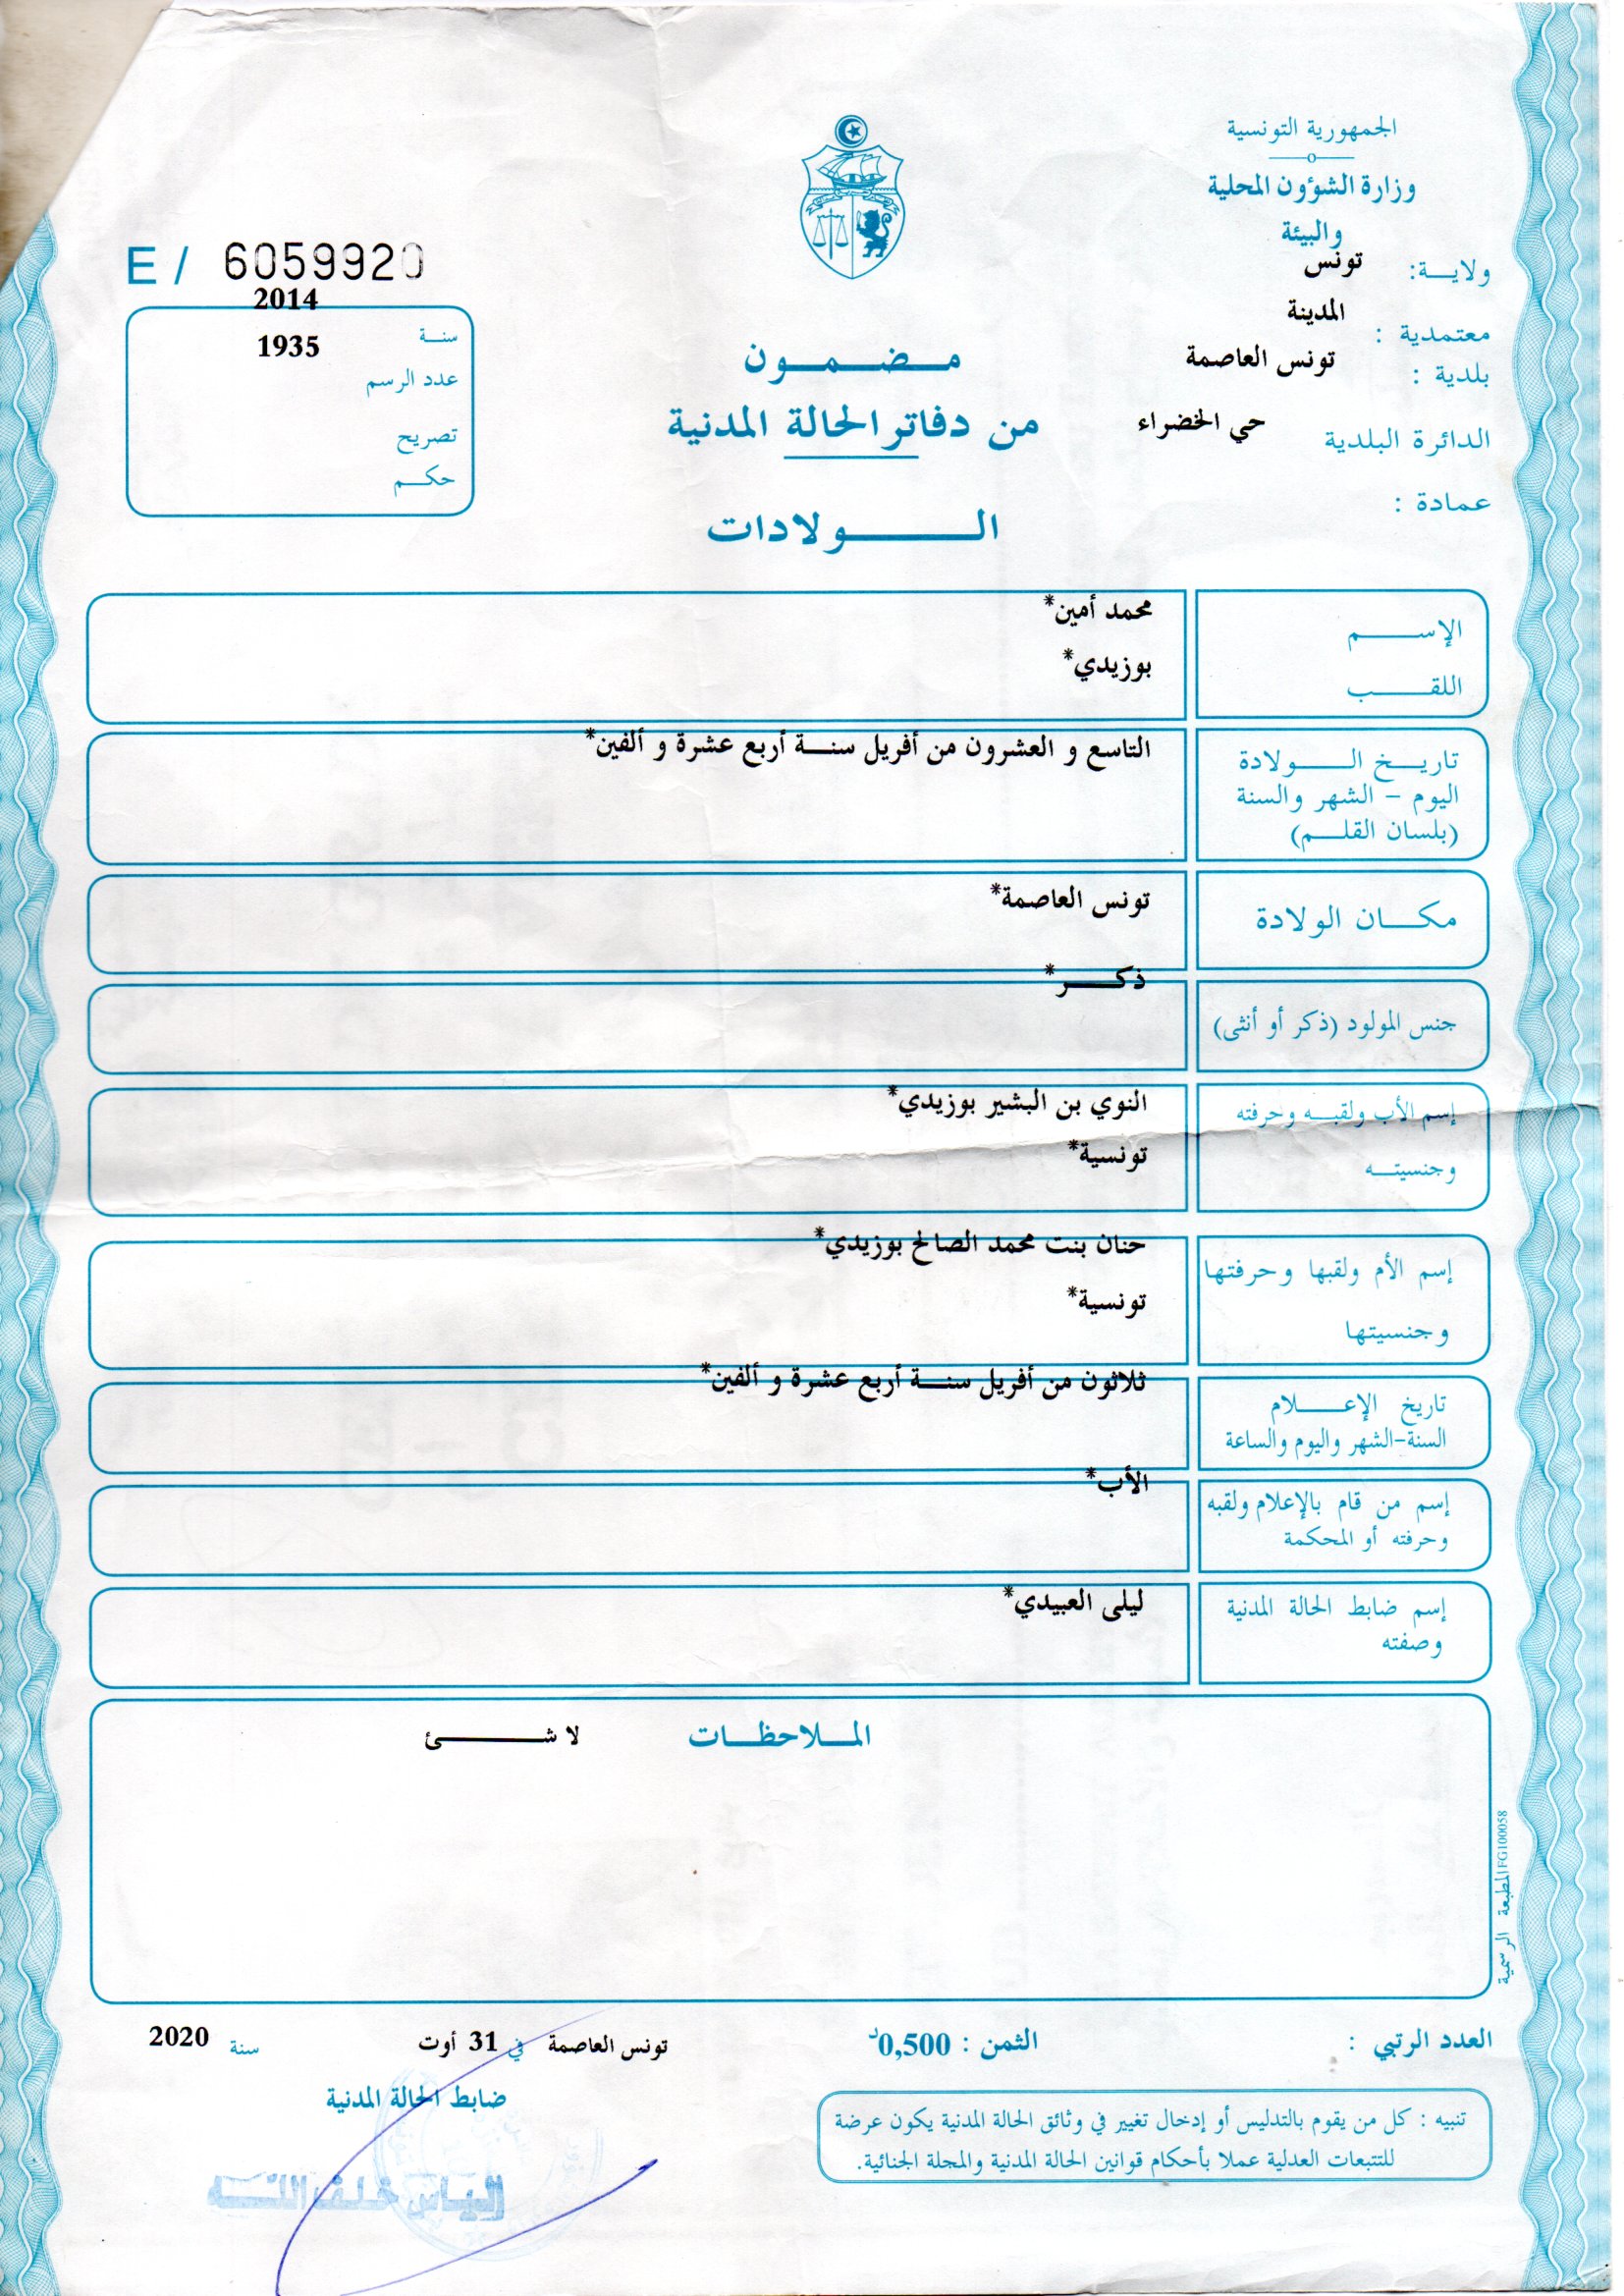 الجمهورية التونسية
وزارة الشؤون المحلية
والبيئة
ولايــة: تونس
معتمدية : المدينة
بلدية : تونس العاصمة
الدائرة البلدية حي الخضراء
عمادة :
E / 6059920
2014
سنـة 1935
عدد الرسم
تصريح
حكـم
مـضـمـون
من دفاتر الحالة المدنية
الـولادات
الإســم محمد أمين*
اللقـب بوزيدي*
تاريـخ الـولادة التاسع و العشرون من أفريل سنـة أربع عشرة و ألفين*
اليوم - الشهر والسنة
(بلسان القلـم)
مكـان الولادة تونس العاصمة*
جنس المولود (ذكر أو أنثى) ذكـر*
إسم الأب ولقبـه وحرفته النوي بن البشير بوزيدي*
وجنسيتـه تونسية*
إسم الأم ولقبها وحرفتها حنان بنت محمد الصالح بوزيدي*
وجنسيتها تونسية*
تاريخ الإعـلام ثلاثون من أفريل سنـة أربع عشرة و ألفين*
السنة-الشهر واليوم والساعة
إسم من قام بالإعلام ولقبه الأب*
وحرفته أو المحكمة
إسم ضابط الحالة المدنية ليلى العبيدي*
وصفته
المـلاحظـات لا شـئ
المطبعة الرسمية FG100058
العدد الرتبي : الثمن : 0,500د تونس العاصمة في 31 أوت سنة 2020
ضابط الحالة المدنية
تنبيه : كل من يقوم بالتدليس أو إدخال تغيير في وثائق الحالة المدنية يكون عرضة
للتتبعات العدلية عملا بأحكام قوانين الحالة المدنية والمجلة الجنائية.